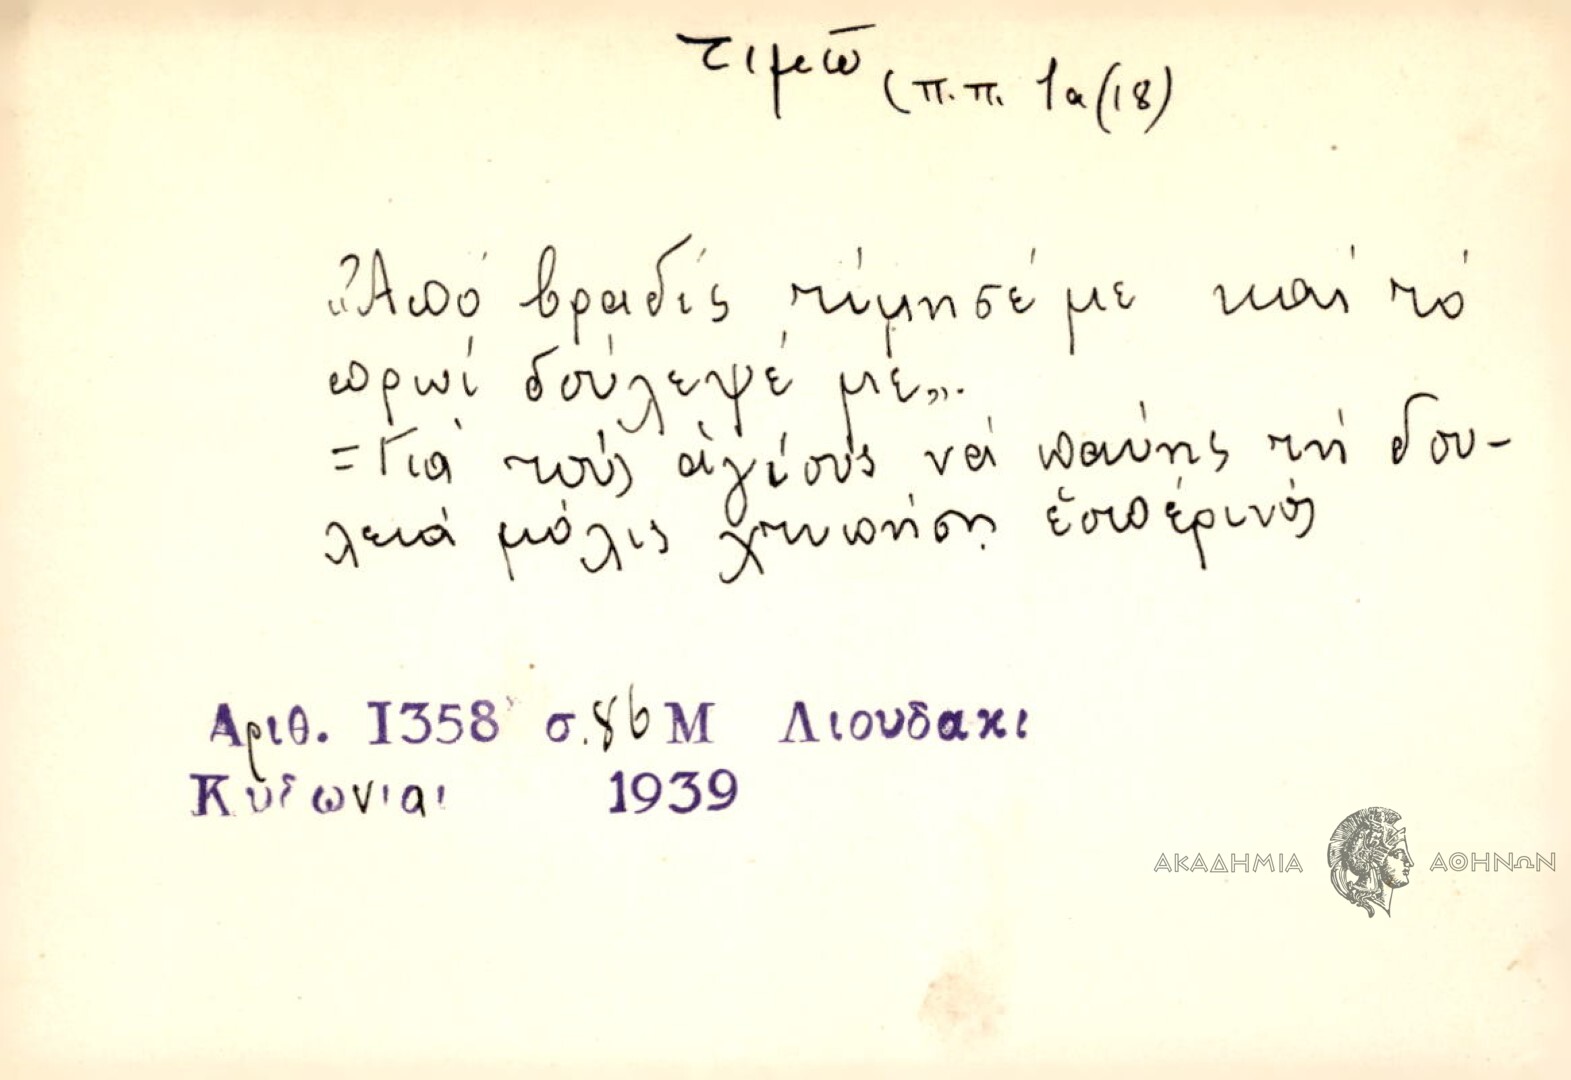 τιμῶ (π.π. 1α(18)
„Ἀπό βραδίς τίμησέ με καί τό
πρωί δούλεψέ με„.
=Γιά τούς ἁγίους νά παύης τή δου-
λειά μόλις χτυπήση ἑσπερινός
Αριθ. 1358 σ.86 Μ Λιουδακι
Κυδωνιαι 1939
ΑΚΑΔΗΜΙΑ ΑΘΗΝΩΝ